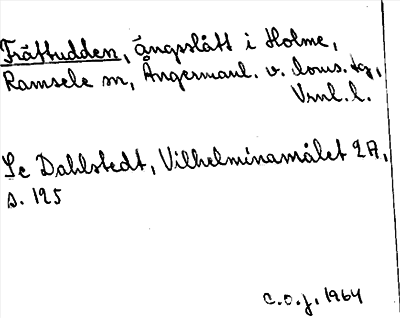 Trättudden, ängsslått i Holme,
Ramsele sn, Ångermanl. v. lows. tg,
Vrml. l.
Se Dahlstedt, Vilhelminamålet 2A,
s. 125
C.O.J. 1964